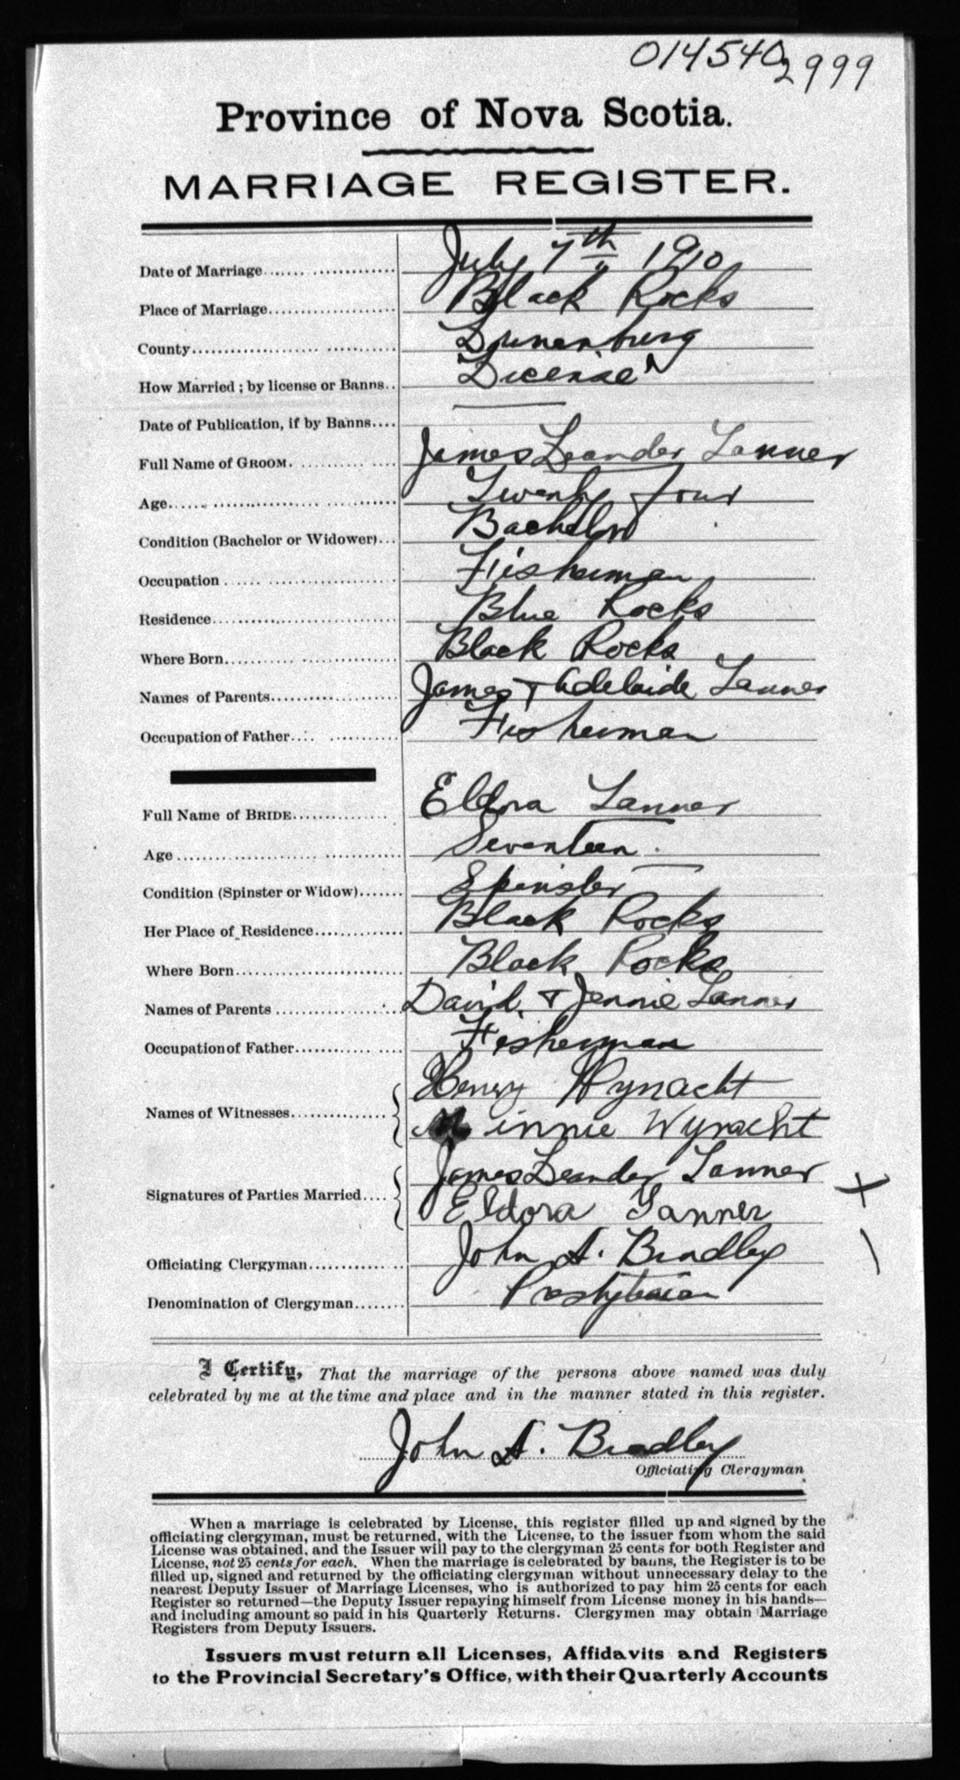 014540
2999
Province of Nova Scotia.
MARRIAGE REGISTER.
Date of Marriage July 7th 1910
Place of Marriage Black Rocks
County Lunenburg
How Married; by license or Banns License
Date of Publication, if by Banns
Full Name of GROOM. James Leander Tanner
Age Twenty four
Condition (Bachelor or Widower) Bachelor
Occupation Fisherman
Residence Blue Rocks
Where Born Black Rocks
Names of Parents James + Adelaide Tanner
Occupation of Father Fisherman
Full Name of BRIDE Eldora Tanner
Age Seventeen
Condition (Spinster or Widow) Spinster
Her Place of Residence Black Rocks
Where Born Black Rocks
Names of Parents David + Jennie Tanner
Occupation of Father Fisherman
Names of Witnesses Henry Wynacht
Minnie Wynacht
Signatures of Parties Married James Leander Tanner
Eldora Tanner
Officiating Clergyman John A. Bradley
Denomination of Clergyman Presbyterian
I Certify, That the marriage of the persons above named was duly
celebrated by me at the time and place and in the manner stated in this register.
John A. Bradley
Officiating Clergyman
When a marriage is celebrated by License, this register filled up and signed by the
officiating clergyman, must be returned, with the License, to the issuer from whom the said
License was obtained, and the Issuer will pay to the clergyman 25 cents for both Register and
License, not 25 cents for each. When the marriage is celebrated by banns, the Register is to be
filled up, signed and returned by the officiating clergyman without unnecessary delay to the
nearest Deputy Issuer of Marriage Licenses, who is authorized to pay him 25 cents for each
Register so returned—the Deputy Issuer repaying himself from License money in his hands—
and including amount so paid in his Quarterly Returns. Clergymen may obtain Marriage
Registers from Deputy Issuers.
Issuers must return all Licenses, Affidavits and Registers
to the Provincial Secretary's Office, with their Quarterly Accounts